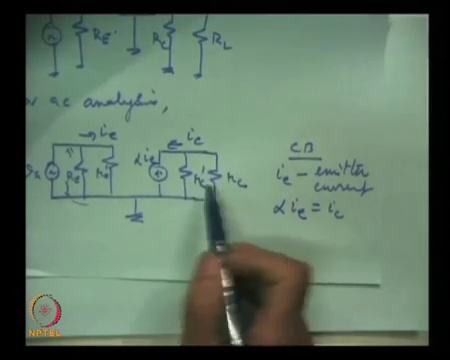 R_E R_C R_L
ac analysis,
i_e α i_e i_c
R_E r_e r_c' r_c
CB
i_e – emitter
current
α i_e = i_c
NPTEL